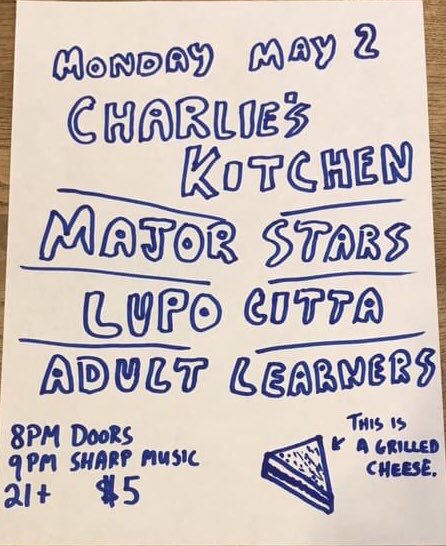 MONDAY MAY 2
CHARLIE'S
KITCHEN
MAJOR STARS
LUPO CITTA
ADULT LEARNERS
8PM DOORS
9PM SHARP MUSIC
21+ $5
THIS IS
A GRILLED
CHEESE.